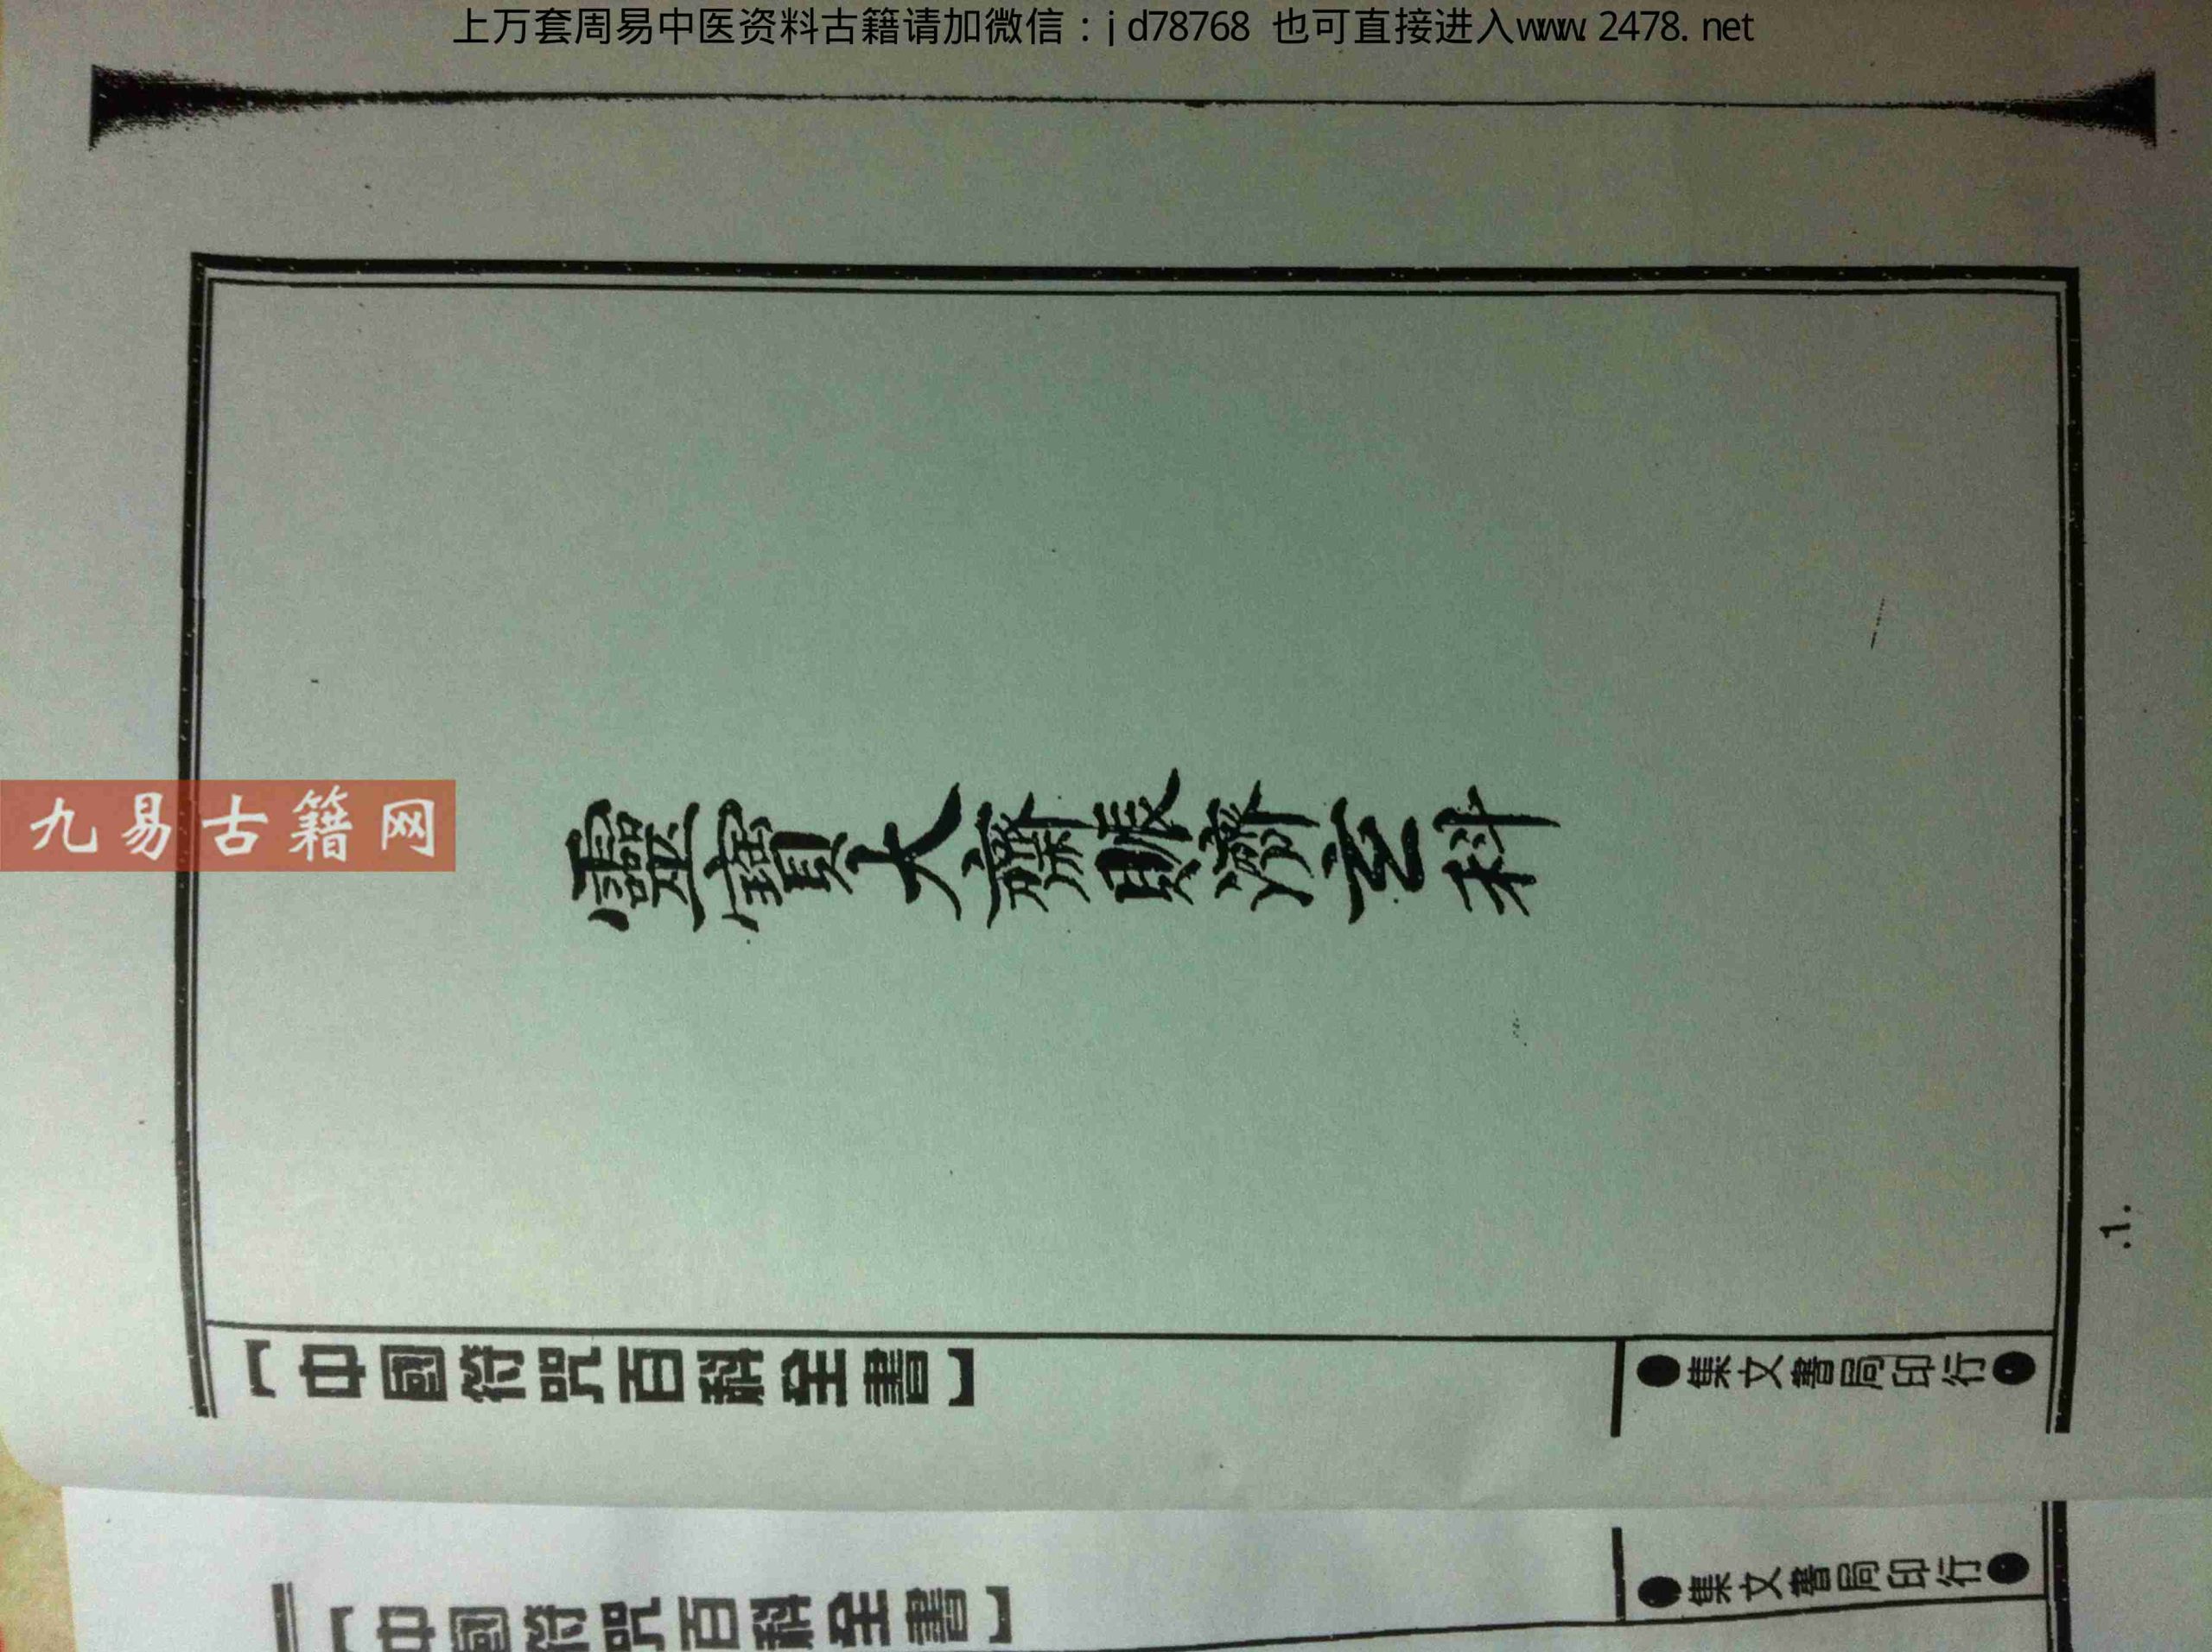 上万套周易中医资料古籍请加微信：jd78768 也可直接进入www.2478.net
九易古籍网
靈寶大齋賑濟玄科
.1.
【中國符咒百科全書】
●集文書局印行●
【中國符咒百科全書】
●集文書局印行●